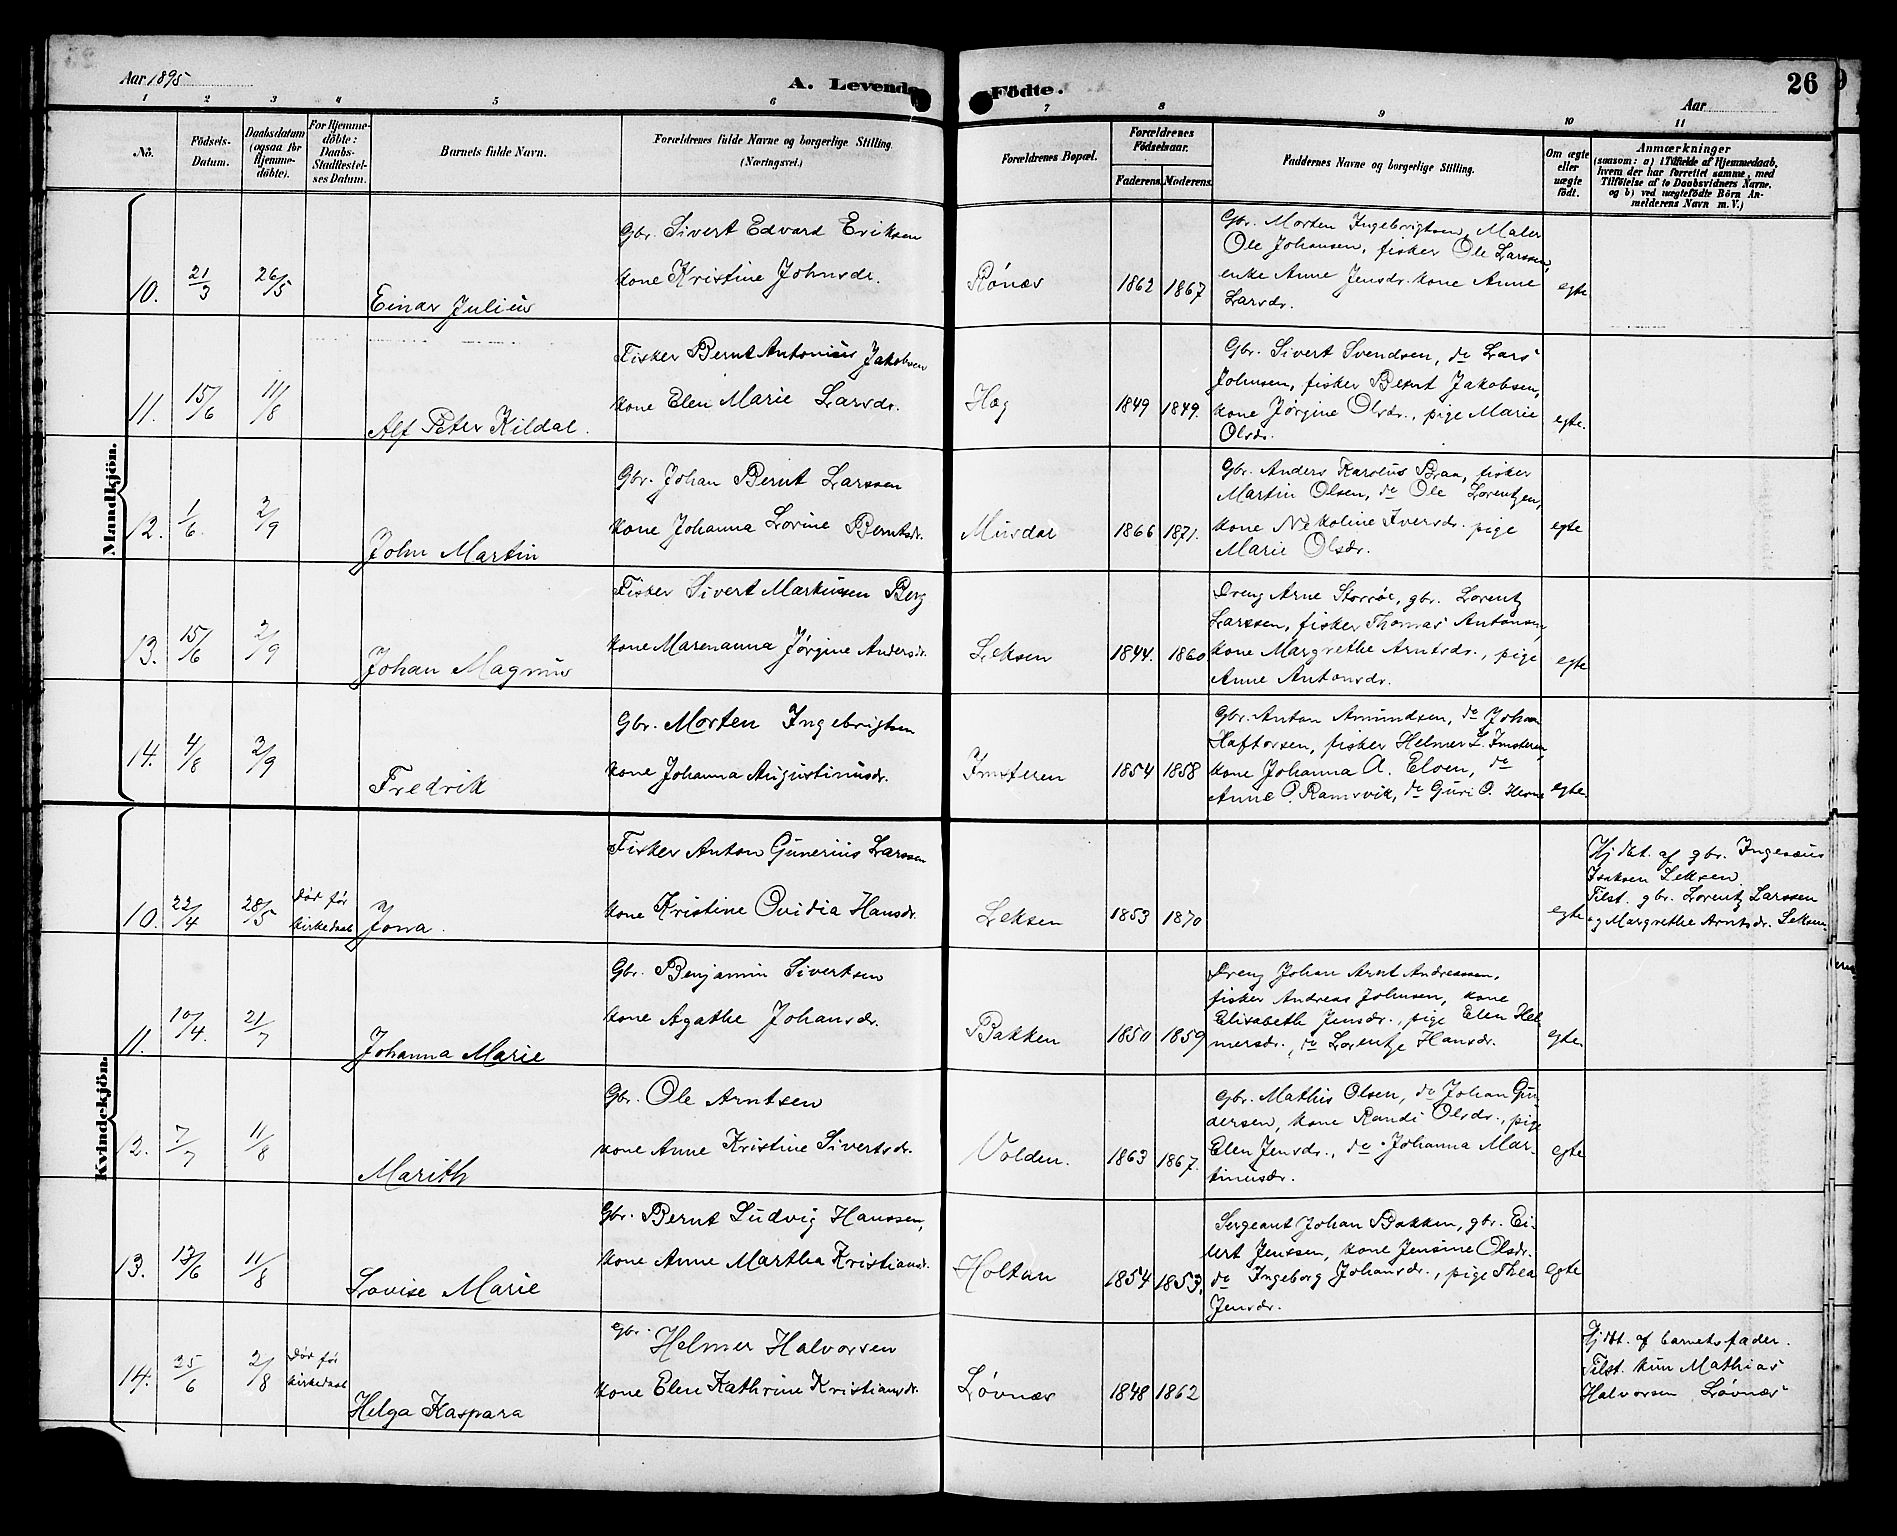 Aar 1895
A. Levende
Födte.
Aar
26
1 2 3 4 5 6 7 8 9 10 11
No.
Födsels-
Datum.
Daabsdatum
(ogsaa for
Hjemme-
döbte).
For Hjemme-
döbte:
Daabs-
Stadfæstel-
ses Datum.
Barnets fulde Navn.
Forældrenes fulde Navne og borgerlige Stilling.
(Næringsvei.)
Forældrenes Bopæl.
Forældrenes
Födselsaar.
Faderens. Moderens.
Faddernes Navne og borgerlige Stilling.
Om ægte
eller
uægte
födt.
Anmærkninger
(saasom: a) i Tilfælde af Hjemmedaab,
hvem der har forrettet samme, med
Tilföielse af to Daabsvidners Navne.
og b) ved uægtefödte Börn An-
melderens Navn m. V.)
Mandkjön.
10. 21/3 26/5 Einar Julius
Gbr. Sivert Edvard Eriksen
kone Kristine Johnsdr.
Rönæs 1862 1867
Gbr. Morten Ingebrigtsen, Maler
Ole Johansen, fisker Ole Larssen,
enke Anne Jensdr. kone Anne
Larsdr.
egte
11. 15/6 11/8 Alf Peter Kildal.
Fisker Bernt Antonius Jakobsen
kone Elen Marie Larsdr.
Hæg 1849 1849.
Gbr. Sivert Svendsen, do Lars
Johnsen, fisker Bernt Jakobsen,
kone Jørgine Olsdr., pige Marie
Olsdr.
egte.
12. 1/6. 2/9 John Martin
Gbr. Johan Bernt Larssen
kone Johanna Lovine Berntsdr.
Musdal 1866 1871.
Gbr. Anders Karolus Braa, fisker
Martin Olsen, do Ole Lorentzen,
kone Nikoline Iversdr. pige
Marie Olsdr.
egte
13. 15/6 2/9 Johan Magnus
Fisker Sivert Markussen Berg
kone Marenanna Jørgine Andersdr.
Leksen 1844. 1860
Dreng Arne Storrøe, gbr. Lorentz
Larssen, fisker Thomas Antonsen,
kone Margrethe Arntsdr., pige
Anne Antonsdr.
egte
14. 4/8 2/9 Fredrik
Gbr. Morten Ingebrigtsen
kone Johanna Augustinusdr.
Imsteren 1854 1858
Gbr. Anton Amundsen, do Johan
Haftorsen, fisker Helmer L. Imsteren,
kone Johanna A. Elven, do
Anne P. Ramsvik, do Guri O. Herne
egte.
Kvindekjön.
10. 22/4 28/5
Död før
kirkedaab
Jona.
Fisker Anton Gunerius Larssen
kone Kristine Ovidia Hansdr.
Leksen 1853 1870
egte
Hj dbt. af gbr. Ingeæus
Isaksen Leksen
Tilst. gbr. Lorentz Larssen
og Margrethe Arntsdr. Leksen
11. 10/4. 21/7 Johanna Marie
Gbr. Benjamin Sivertsen
kone Agathe Johansdr.
Bakken 1850 1859
Dreng Johan Arnt Andreassen,
fisker Andreas Johnsen, kone
Elisabeth Jensdr., pige Elen Hel
mersdr., do Lorentze Hansdr.
egte.
12. 7/7 11/8 Marith
Gbr. Ole Arntsen
kone Anne Kristine Sivertsdr.
Volden. 1863 1867.
Gbr. Mathis Olsen, do Johan Gun
dersen, kone Randi Olsdr., pige
Elen Jensdr., do Johanna Mar-
tinusdr.
egte
13. 13/6 11/8 Lovise Marie
Gbr. Bernt Ludvig Hanssen,
kone Anne Martha Kristiansdr.
Holtan 1854 1853.
Sergeant Johan Bakken, gbr. Ei-
lert Jenssen, kone Jensine Olsdr.
do Ingeborg Johansdr., pige Thea
Jensdr.
egte
14. 25/6 2/8
Död før
kirkedaab
Helga Kaspara
Gbr. Helmer Halvorsen
kone Elen Kathrine Kristiansdr.
Løvnæs 1848 1862
Hj dbt. af barnets fader.
Tilst. kun Mathias
Halvorsen Løvnæs